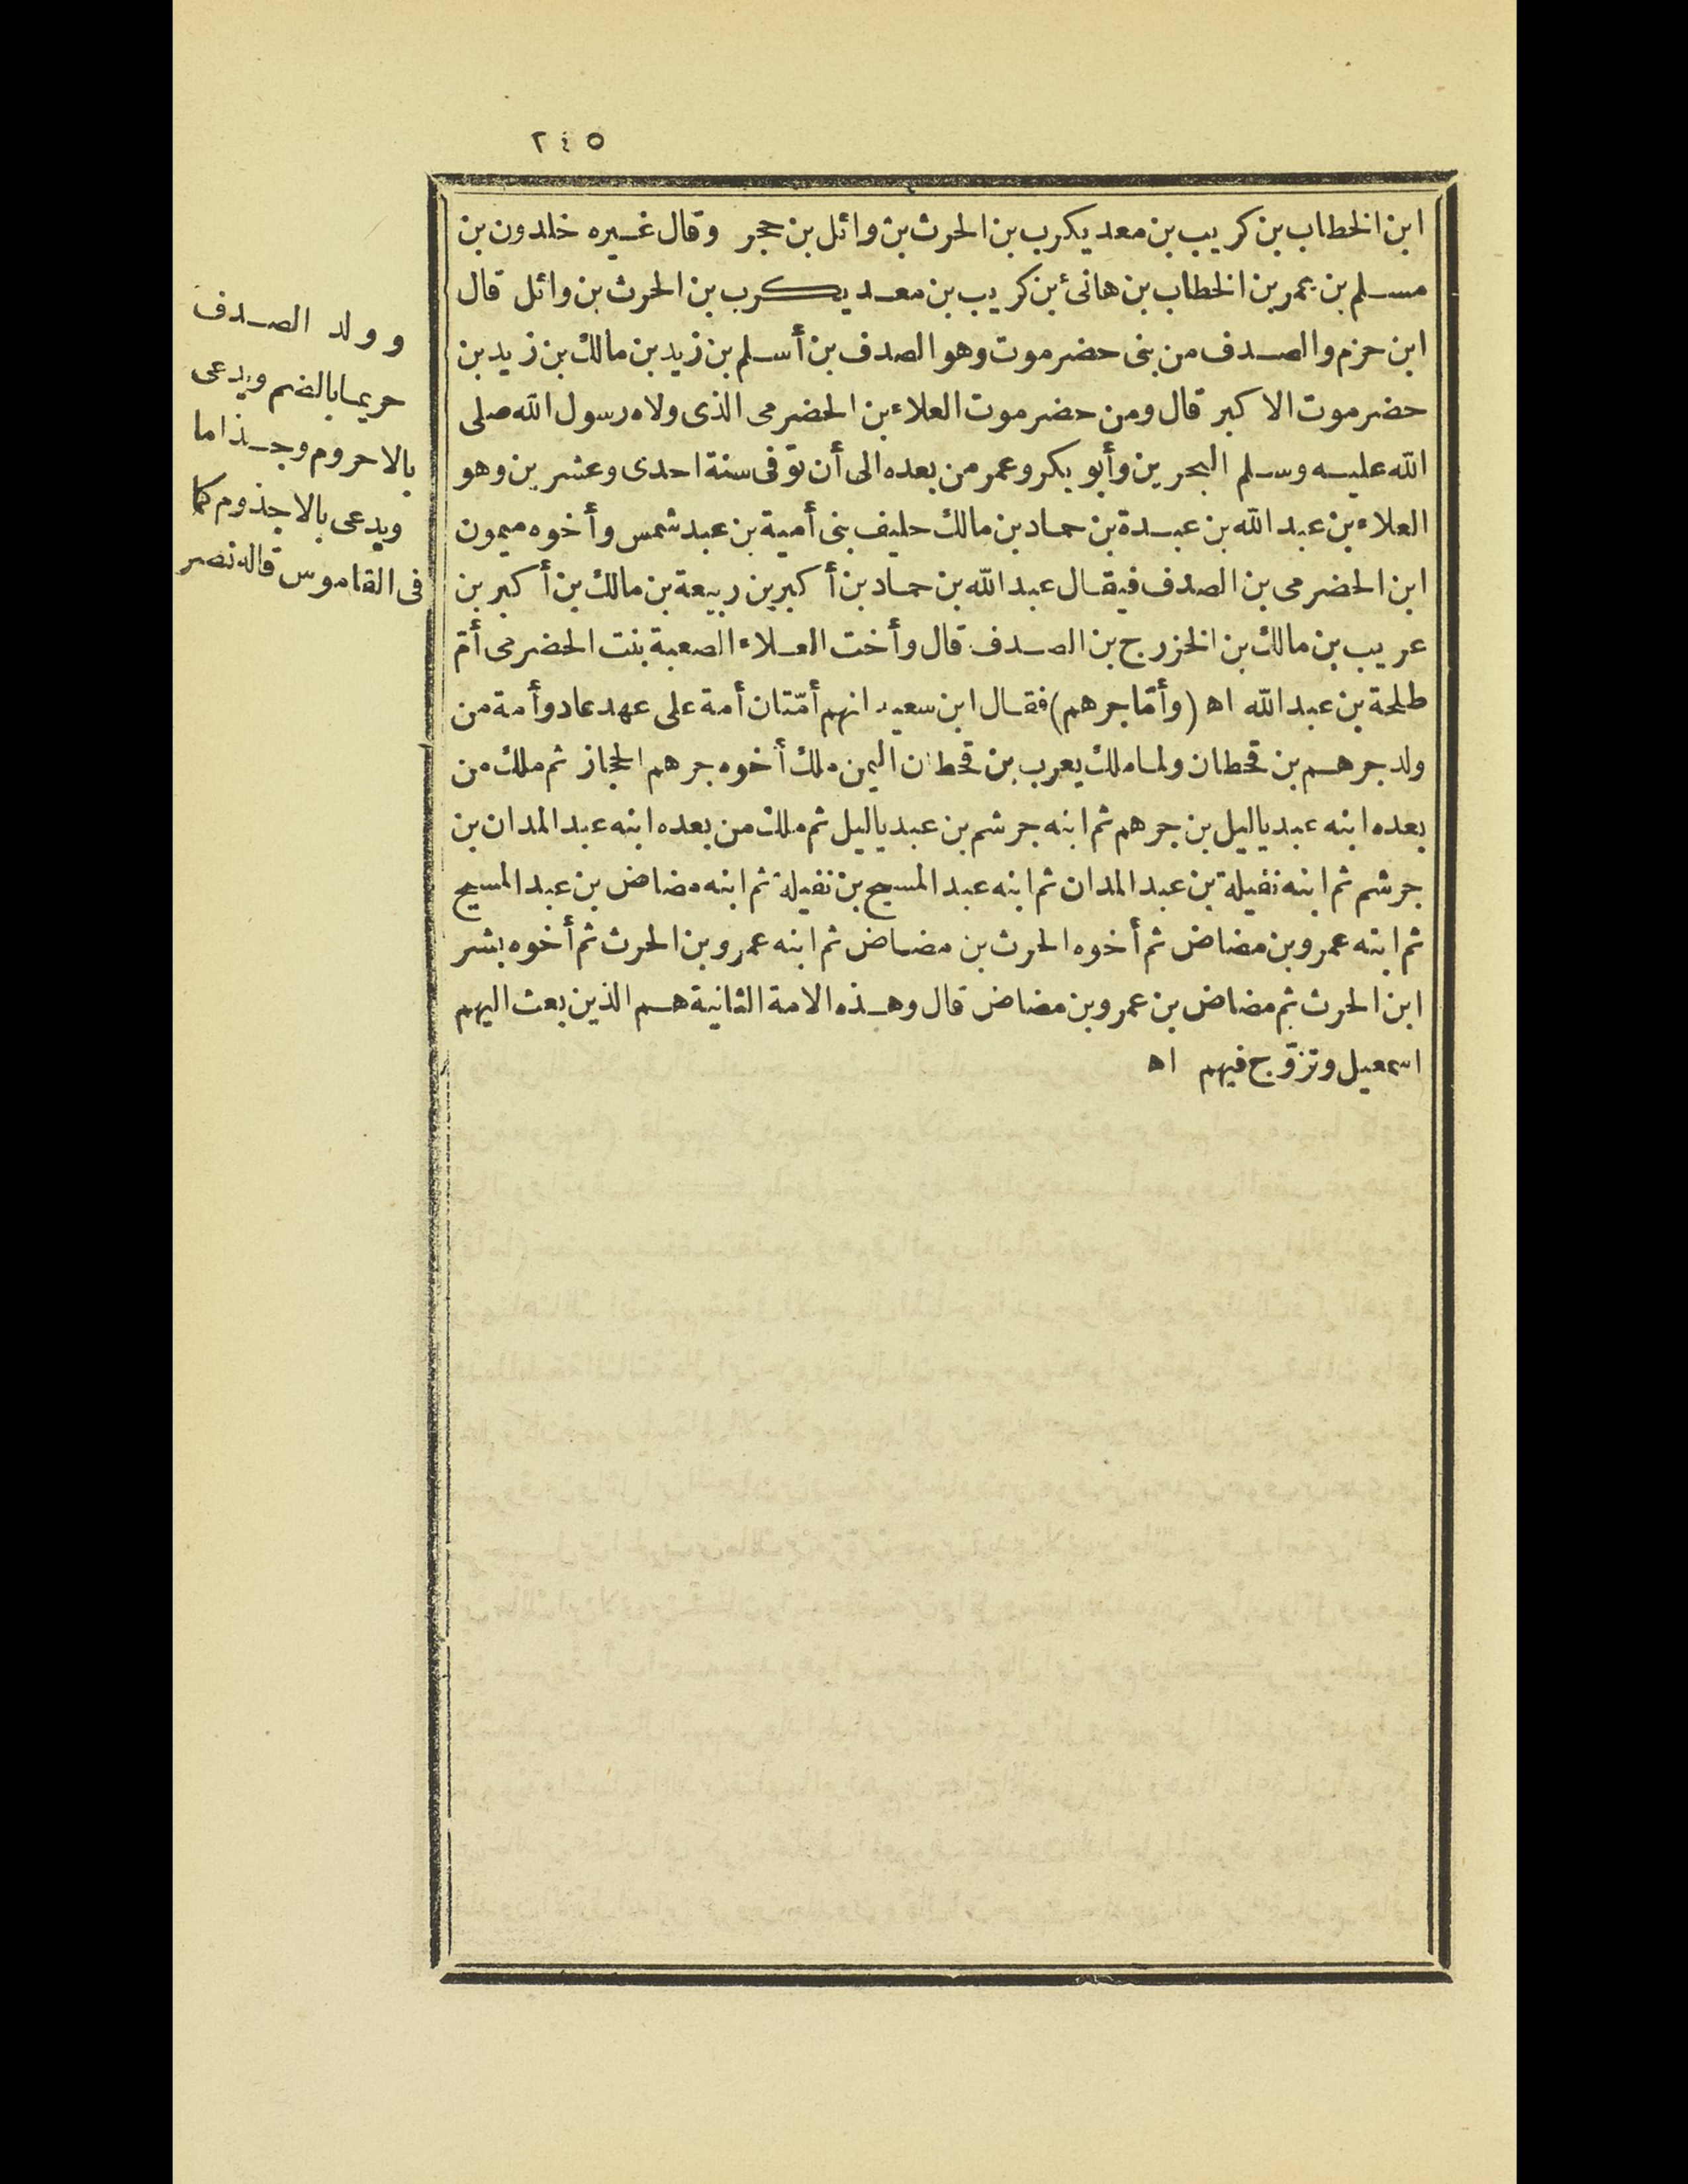 ٢٤٥
ابن الخطاب بن كريب بن معد يكرب بن الحرث بن وائل بن حجر وقال غيره خلدون بن
مسلم بن عمر بن الخطاب بن هانئ بن كريب بن معد يكرب بن الحرث بن وائل قال
ابن حزم والصدف من بنى حضرموت وهو الصدف بن أسلم بن زيد بن مالك بن زيد بن
حضرموت الاكبر قال ومن حضرموت العلاء بن الحضرمى الذى ولاه رسول الله صلى
الله عليه وسلم البحرين وأبو بكر وعمر من بعده الى أن توّفى سنة احدى وعشرين وهو
العلاء بن عبد الله بن عبدة بن حماد بن مالك حليف بنى أمية بن عبد شمس وأخوه ميمون
ابن الحضرمى بن الصدف فيقال عبد الله بن حماد بن أكبر بن ربيعة بن مالك بن أكبر بن
عريب بن مالك بن الخزرج بن الصدف قال وأخت العلاء الصعبة بنت الحضرمى أمّ
طلحة بن عبد الله اه (وأمّا جرهم) فقال ابن سعيد انهم أمّتان أمة على عهد عاد وأمة من
ولد جرهم بن قحطان ولما ملك يعرب بن قحطان اليمن ملك أخوه جرهم الحجاز ثم ملك من
بعده ابنه عبد ياليل بن جرهم ثم ابنه جرشم بن عبد ياليل ثم ملك من بعده ابنه عبد المدان بن
جرشم ثم ابنه نفيلة بن عبد المدان ثم ابنه عبد المسيح بن نفيلة ثم ابنه مضاض بن عبد المسيح
ثم ابنه عمرو بن مضاض ثم أخوه الحرث بن مضاض ثم ابنه عمرو بن الحرث ثم أخوه بشر
ابن الحرث ثم مضاض بن عمرو بن مضاض قال وهذه الامة الثانية هم الذين بعث اليهم
اسمعيل وتزوّج فيهم اه
وولد الصدف
حريما بالضم ويدعى
بالاحروم وجذاما
ويدعى بالاجذوم كما
فى القاموس قاله نصر